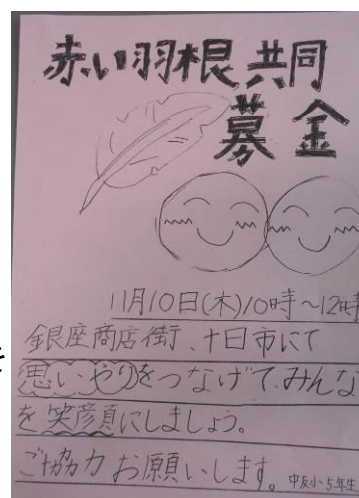 赤い羽根共同
募金
11月10日(木)10時〜12時
銀座商店街、十日市にて
思いやりをつなげて、みんな
を笑彦頁にしましょう。
ご協力お願いします。中友小5年生